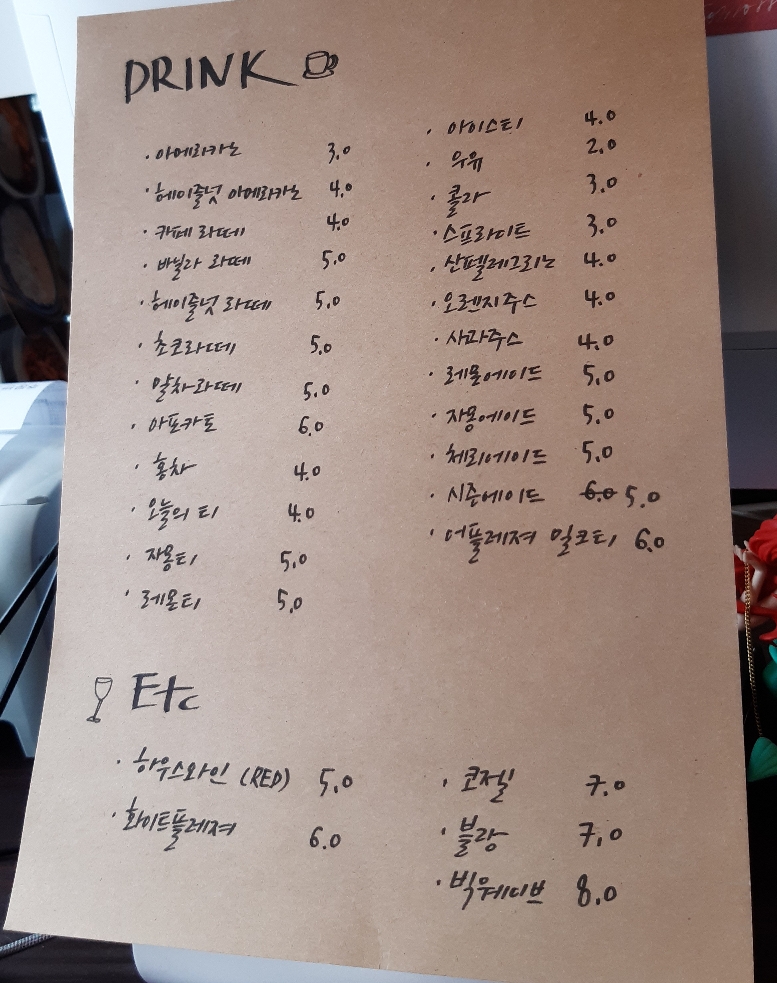 DRINK
· 아메리카노 3.0
· 헤이즐넛 아메리카노 4.0
· 카페 라떼 4.0
· 바닐라 라떼 5.0
· 헤이즐넛 라떼 5.0
· 초코라떼 5.0
· 말차라떼 5.0
· 아포카토 6.0
· 홍차 4.0
· 오늘의 티 4.0
· 자몽티 5.0
· 레몬티 5.0
· 아이스티 4.0
· 우유 2.0
· 콜라 3.0
· 스프라이트 3.0
· 산펠레그리노 4.0
· 오렌지주스 4.0
· 사과주스 4.0
· 레몬에이드 5.0
· 자몽에이드 5.0
· 체리에이드 5.0
· 시즌에이드 6.0 5.0
· 어플레져 밀크티 6.0
Etc
· 하우스와인 (RED) 5.0
· 화이트플레져 6.0
· 코젤 7.0
· 블랑 7.0
· 빅웨이브 8.0